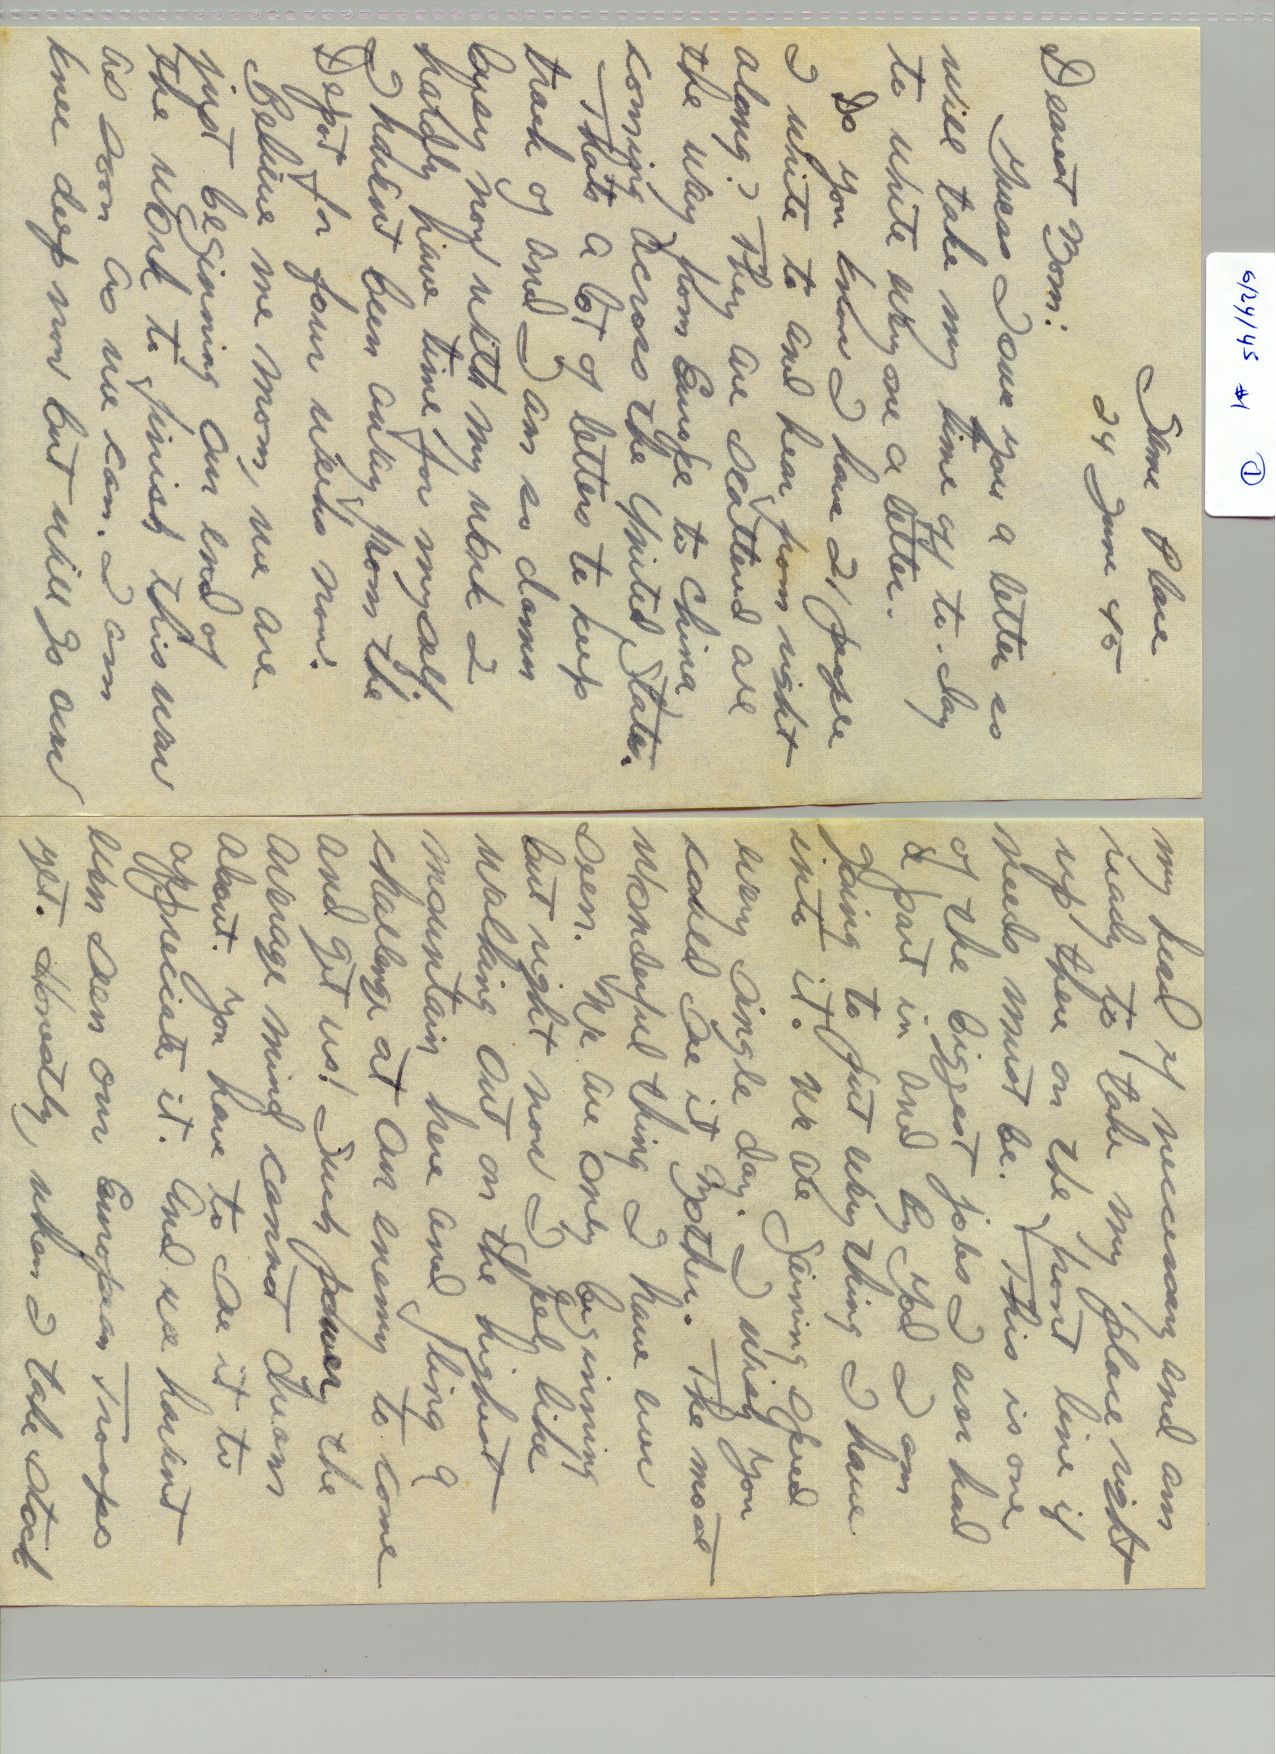 6/24/45 #1 ①
Same Place
24 June 45
Dearest Mom:
Guess I owe you a letter so
will take my time off to-day
to write why one a letter.
Do you know I have 21 people
I write to and hear from right
along? They are scattered are
the way from Europe to China
coming across the United States.
Thats a lot of letters to keep
track of and I am so damn
busy now with my work I
hardly have time for myself.
I havent been away from the
Depot for four weeks now.
Believe me mom, we are
just beginning our end of
the work to finish this war
as soon as we can. I am
knee deep now but will go over
my head if necessary and am
ready to take my place right
up there on the front line if
needs must be. This is one
of the biggest jobs I ever had
a part in and by God I am
going to put everything I have
into it. We are gaining speed
every single day. I wish you
could see it Mother. The most
wonderful thing I have ever
seen. We are only beginning
but right now I feel like
walking out on the highest
mountain here and fling a
challenge at an enemy to come
and get us! Such power the
average mind cannot dream
about. You have to see it to
appreciate it. And we havent
even seen our European Troops
yet. Honestly, when I take stock